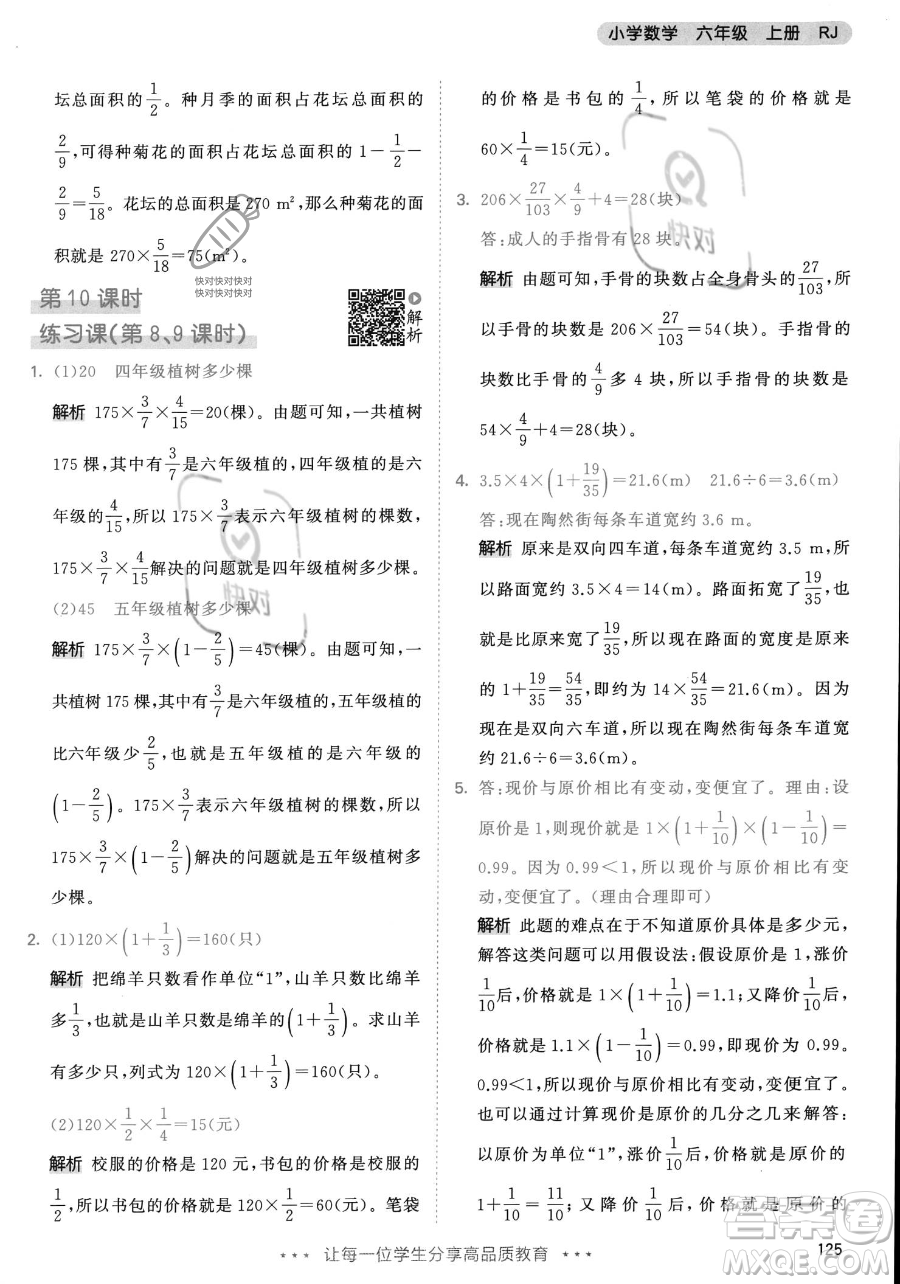 小学数学 六年级 上册 RJ
坛总面积的1/2。种月季的面积占花坛总面积的
2/9，可得种菊花的面积占花坛总面积的1－1/2－
2/9＝5/18。花坛的总面积是270 m²，那么种菊花的面
积就是270×5/18＝75(m²)。
快对快对快对
快对快对快对
第10课时
练习课(第8、9课时)
解
析
1. (1)20 四年级植树多少棵
解析 175×3/7×4/15＝20(棵)。由题可知，一共植树
175棵，其中有3/7是六年级植的，四年级植的是六
年级的4/15，所以175×3/7表示六年级植树的棵数，
175×3/7×4/15解决的问题就是四年级植树多少棵。
(2)45 五年级植树多少棵
解析 175×3/7×(1－2/5)＝45(棵)。由题可知，一
共植树175棵，其中有3/7是六年级植的，五年级植的
比六年级少2/5，也就是五年级植的是六年级的
(1－2/5)。175×3/7表示六年级植树的棵数，所以
175×3/7×(1－2/5)解决的问题就是五年级植树多
少棵。
2. (1)120×(1＋1/3)＝160(只)
解析 把绵羊只数看作单位“1”，山羊只数比绵羊
多1/3，也就是山羊只数是绵羊的(1＋1/3)。求山羊
有多少只，列式为120×(1＋1/3)＝160(只)。
(2)120×1/2×1/4＝15(元)
解析 校服的价格是120元，书包的价格是校服的
1/2，所以书包的价格就是120×1/2＝60(元)。笔袋
的价格是书包的1/4，所以笔袋的价格就是
60×1/4＝15(元)。
3. 206×27/103×4/9＋4＝28(块)
答：成人的手指骨有28块。
解析 由题可知，手骨的块数占全身骨头的27/103，所
以手骨的块数是206×27/103＝54(块)。手指骨的
块数比手骨的4/9多4块，所以手指骨的块数是
54×4/9＋4＝28(块)。
4. 3.5×4×(1＋19/35)＝21.6(m) 21.6÷6＝3.6(m)
答：现在陶然街每条车道宽约3.6 m。
解析 原来是双向四车道，每条车道宽约3.5 m，所
以路面宽约3.5×4＝14(m)。路面拓宽了19/35，也
就是比原来宽19/35，所以现在路面的宽度是原来
的1＋19/35＝54/35，即宽约14×54/35＝21.6(m)。因为
现在是双向六车道，所以现在陶然街每条车道宽
约21.6÷6＝3.6(m)。
5. 答：现价与原价相比有变动，变便宜了。理由：设
原价是1，则现价就是1×(1＋1/10)×(1－1/10)＝
0.99。因为0.99＜1，所以现价与原价相比有变
动，变便宜了。(理由合理即可)
解析 此题的难点在于不知道原价具体是多少元，
解答这类问题可以用假设法：假设原价是1，涨价
1/10后，价格就是1×(1＋1/10)＝1.1；又降价1/10后，
价格就是1.1×(1－1/10)＝0.99，即现价是0.99。
0.99＜1，所以现价与原价相比有变动，变便宜了。
也可以通过计算现价是原价的几分之几来解答：
以原价为单位“1”，涨价1/10后，价格就是原价的
1＋1/10＝11/10；又降价1/10后，现价就是原价的
125
*** 让每一位学生分享高品质教育 ***
快对
快对
答案圈
MXQE.COM